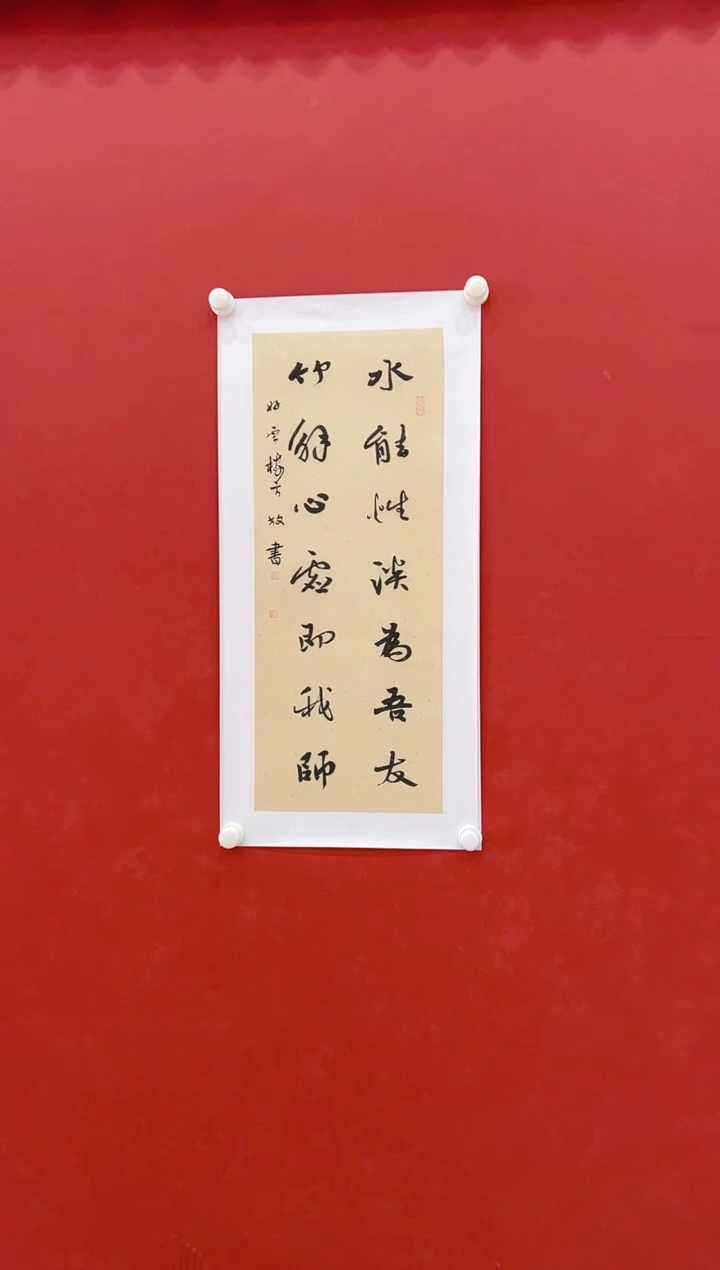 水能性淡為吾友
竹解心虛即我師
書